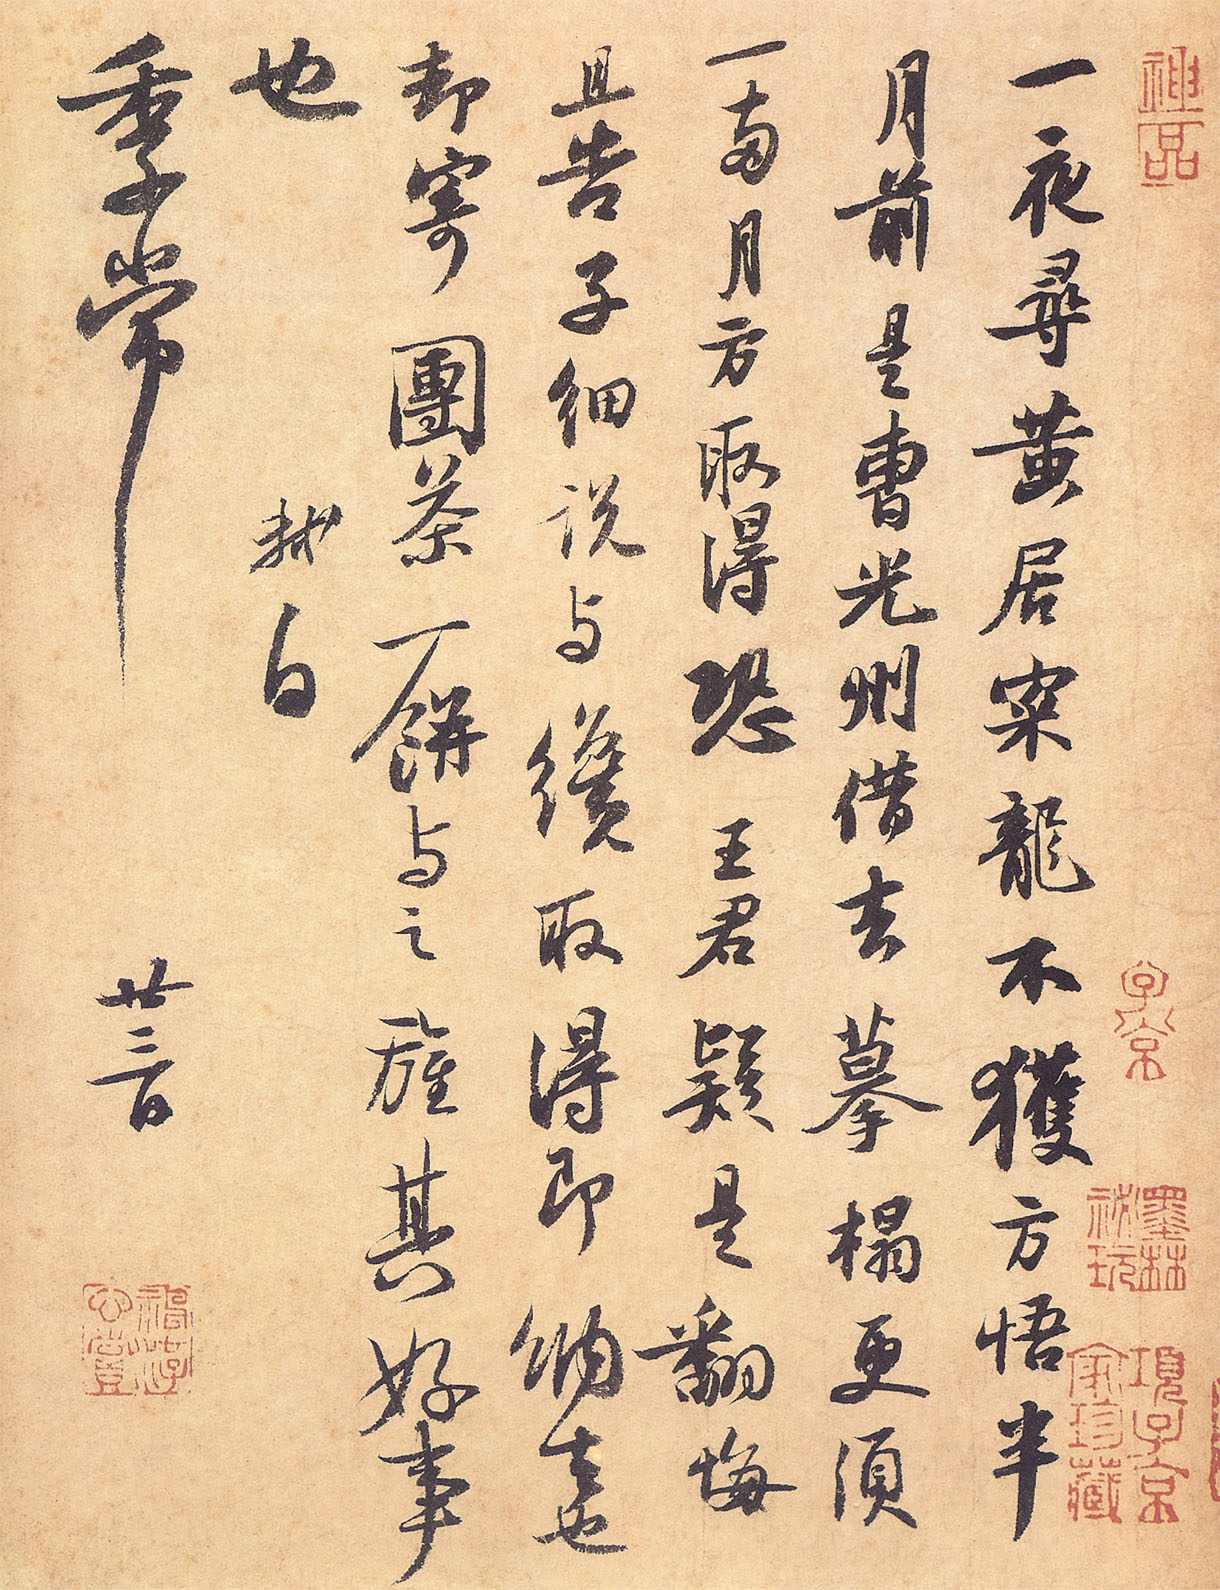 一夜尋黃居寀龍不獲方悟半
月前是曹光州借去摹搨更須
一兩月方取得恐王君疑是翻悔
且告子細說与纔取得即納去也
却寄團茶一餅与之旌其好事
也
軾白
季常
廿三日
神品
子京
墨林祕玩
項子京家珍藏